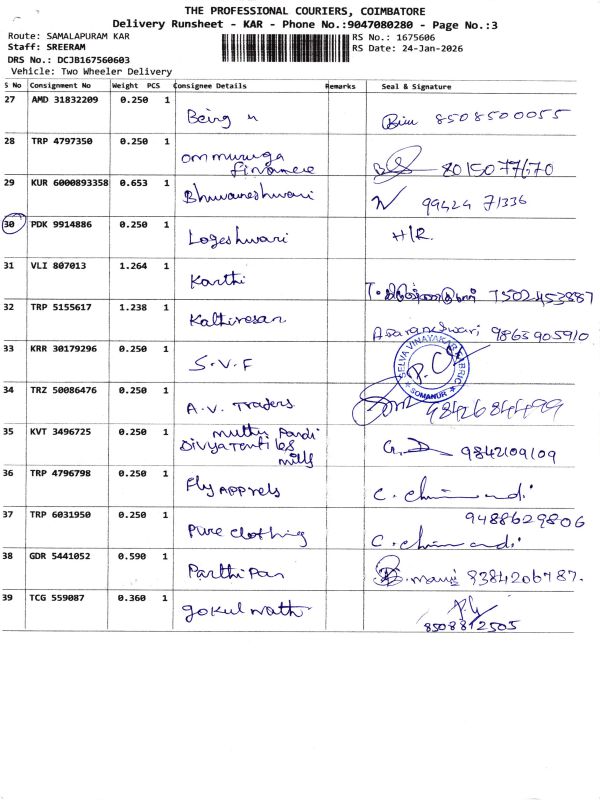 THE PROFESSIONAL COURIERS, COIMBATORE
Delivery Runsheet - KAR - Phone No.:9047080280 - Page No.:3
Route: SAMALAPURAM KAR
RS No.: 1675606
Staff: SREERAM
RS Date: 24-Jan-2026
DRS No.: DCJB167560603
Vehicle: Two Wheeler Delivery
S No Consignment No Weight PCS Consignee Details Remarks Seal & Signature
27 AMD 31832209 0.250 1 Being 8508500055
28 TRP 4797350 0.250 1 ommuruga finance 8015077670
29 KUR 6000893358 0.653 1 Bhuvaneshwari 99424 71336
30 PDK 9914886 0.250 1 Logeshwari H/R.
31 VLI 807013 1.264 1 Karthi 7502453887
32 TRP 5155617 1.238 1 Kathiresan 9865905910
33 KRR 30179296 0.250 1 S.V.F SELVA VINAYAKAR FABRIC SOMANUR
34 TRZ 50086476 0.250 1 A.V. Traders 9842684499
35 KVT 3496725 0.250 1 muthu Pandi Divya Textiles mills G.D 9842109109
36 TRP 4796798 0.250 1 Fly APPrels
37 TRP 6031950 0.250 1 Pure clothing 9488629806
38 GDR 5441052 0.590 1 Parthipan 9384206787.
39 TCG 559087 0.360 1 gokulnath 8508812505